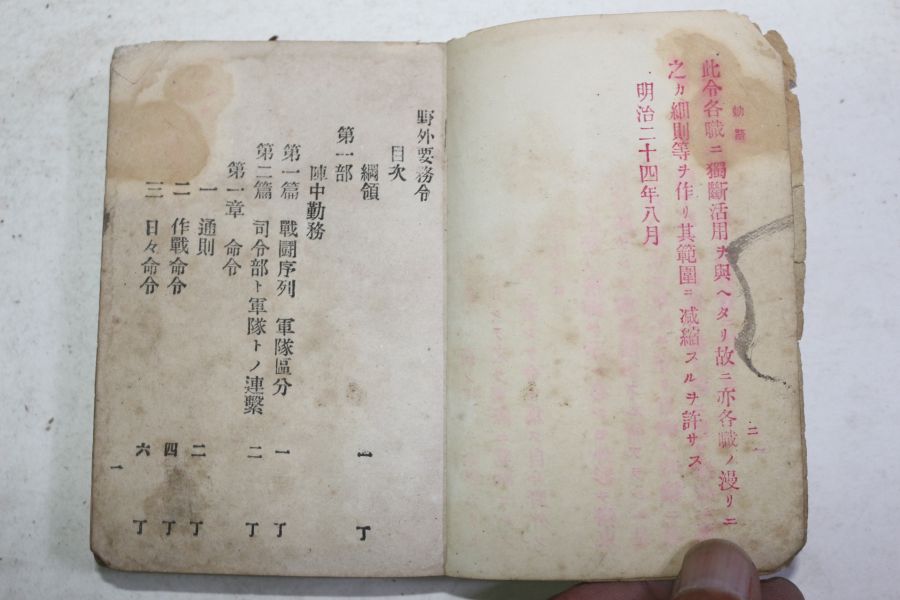 勅語
此令各職ニ獨斷活用ヲ與ヘタリ故ニ亦各職ノ漫リニ
之カ細則等ヲ作リ其範圍ニ减縮スルヲ許サス
明治二十四年八月
二
野外要務令
目次
綱領 一丁
第一部
陣中勤務
第一篇 戰鬪序列 軍隊區分 一丁
第二篇 司令部ト軍隊トノ連繫 二丁
第一章 命令
一 通則 二丁
二 作戰命令 四丁
三 日々命令 六丁
一